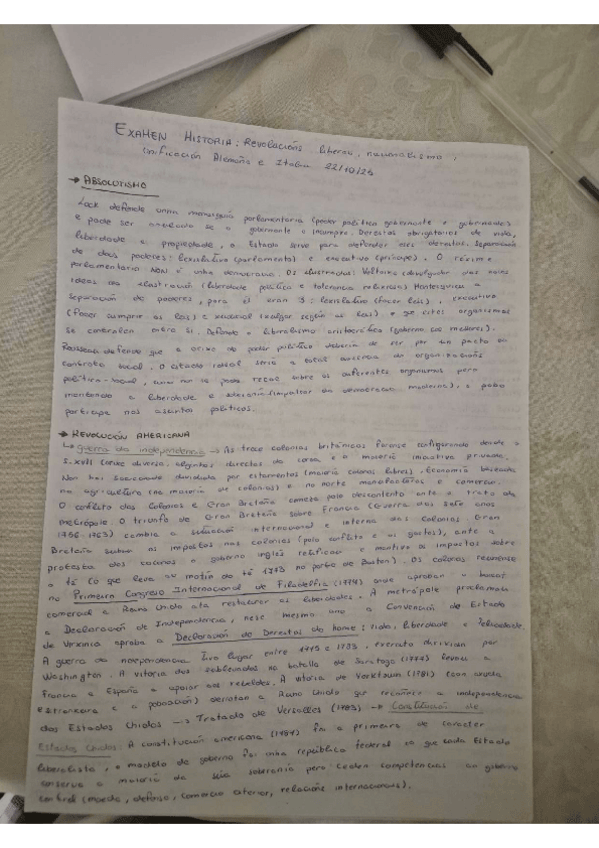 EXAMEN HISTORIA: REVOLUCIÓNS liberais, nacionalismo,
Unificación Alemaña e Italia 22/10/25
→ ABSOLUTISMO
Lock defende unha monarquía parlamentaria (poder político gobernante e gobernados)
e pode ser anulado se o gobernante o incumpre. Dereitos obrigatorios de vida,
liberdade e propiedade, o Estado serve para defender eses dereitos. Separación
de dous poderes: lexislativo (parlamento) e executivo (príncipe). O réxime
parlamentario NON é unha democracia. Os ilustrados: Voltaire (divulgador das novas
ideas na ilustración (liberdade política e tolerancia relixiosa) Montesquieu
separación de poderes, para él eran 3: lexislativo (facer leis), executivo
(facer cumprir as leis) e xudicial (xulgar según as leis) e que estes organismos
se controlen entre si. Defende o liberalismo aristocrático (goberno dos mellores).
Rousseau defende que a orixe do poder político debería de ser por un pacto ou
contrato social. O estado ideal sería a total ausencia de organizacións
político-social, sobre os diferentes organismos pero
mantendo a liberdade e (impulsor da democracia moderna), o pobo
participe nos asuntos políticos.
→ REVOLUCIÓN AMERICANA
↳ guerra da independencia → As trece colonias británicas foronse configurando desde o
s. XVII (orixe diverso, algunhas directas da coroa e a maioría iniciativa privada.
Non hai sociedade dividida por estamentos (maioría colonos libres). Economía baseada
na agricultura (na maioría de colonias) e no norte manufacturas e comercio.
O conflicto das Colonias e Gran Bretaña comeza polo descontento ante o trato da
metrópole. O triunfo de Gran Bretaña sobre Francia (Guerra dos Sete anos
1756-1763) cambia a situación internacional e interna das Colonias. Gran
Bretaña subiu os impostos nas colonias (polo conflicto e os gastos), ante a
protesta dos colonos o goberno inglés rectificou e mantivo os impostos sobre
o té (o que leva ao motín do té 1773 no porto de Boston). Os colonos reúnense
no Primeiro Congreso Internacional de Filadelfia (1774) onde aproban o boicot
comercial a Reino Unido ata restaurar as liberdades. A metrópole proclamou
a Declaración de Independencia, nese mesmo ano a Convención de Estado
de Virxinia aproba a Declaración de Dereitos do home: vida, liberdade e felicidade
A guerra da independencia tivo lugar entre 1775 e 1783, exercito dirixian por
Washington. A vitoria dos sublevados na batalla de Saratoga (1777) levou a
Francia e España a apoiar aos rebeldes. A vitoria de Yorktown (1781) (con axuda
estranxeira e a poboación) derrotan a Reino Unido que recoñece a independencia
dos Estados Unidos → Tratado de Versalles (1783) → Constitución de
Estados Unidos: A constitución americana (1787) foi a primeira de carácter
liberalista, o modelo de goberno foi unha república federal xa que cada Estado
conserva a maioría da súa soberanía pero ceden competencias ao goberno
central (moeda, defensa, comercio exterior, relacións internacionais).